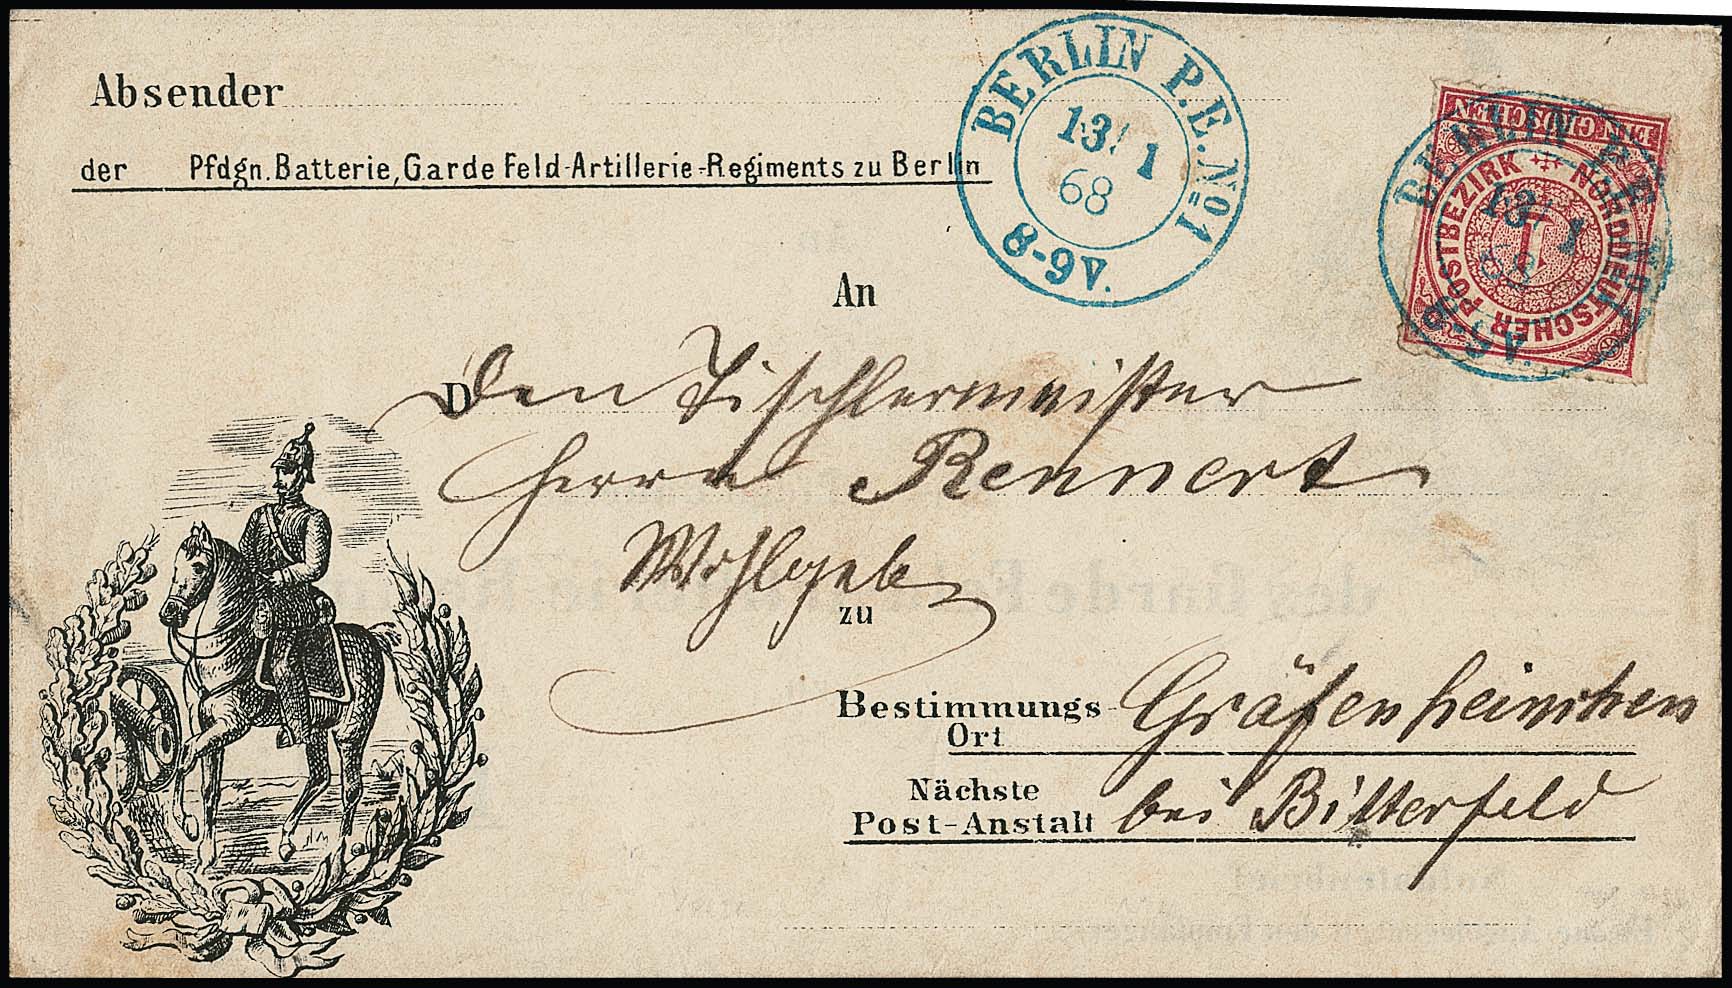 Absender
der Pfdgn. Batterie, Garde Feld-Artillerie-Regiments zu Berlin
BERLIN P.E. No 1
13/1
68
8-9V.
EIN GROSCHEN
NORDDEUTSCHER POSTBEZIRK
1
BERLIN P.E. No 1
13/1
68
An
Den Tischlermeister
Herrn Rennert
Wohlgeb
zu
Bestimmungs- Gräfenheinichen
Ort
Nächste
Post-Anstalt bei Bitterfeld